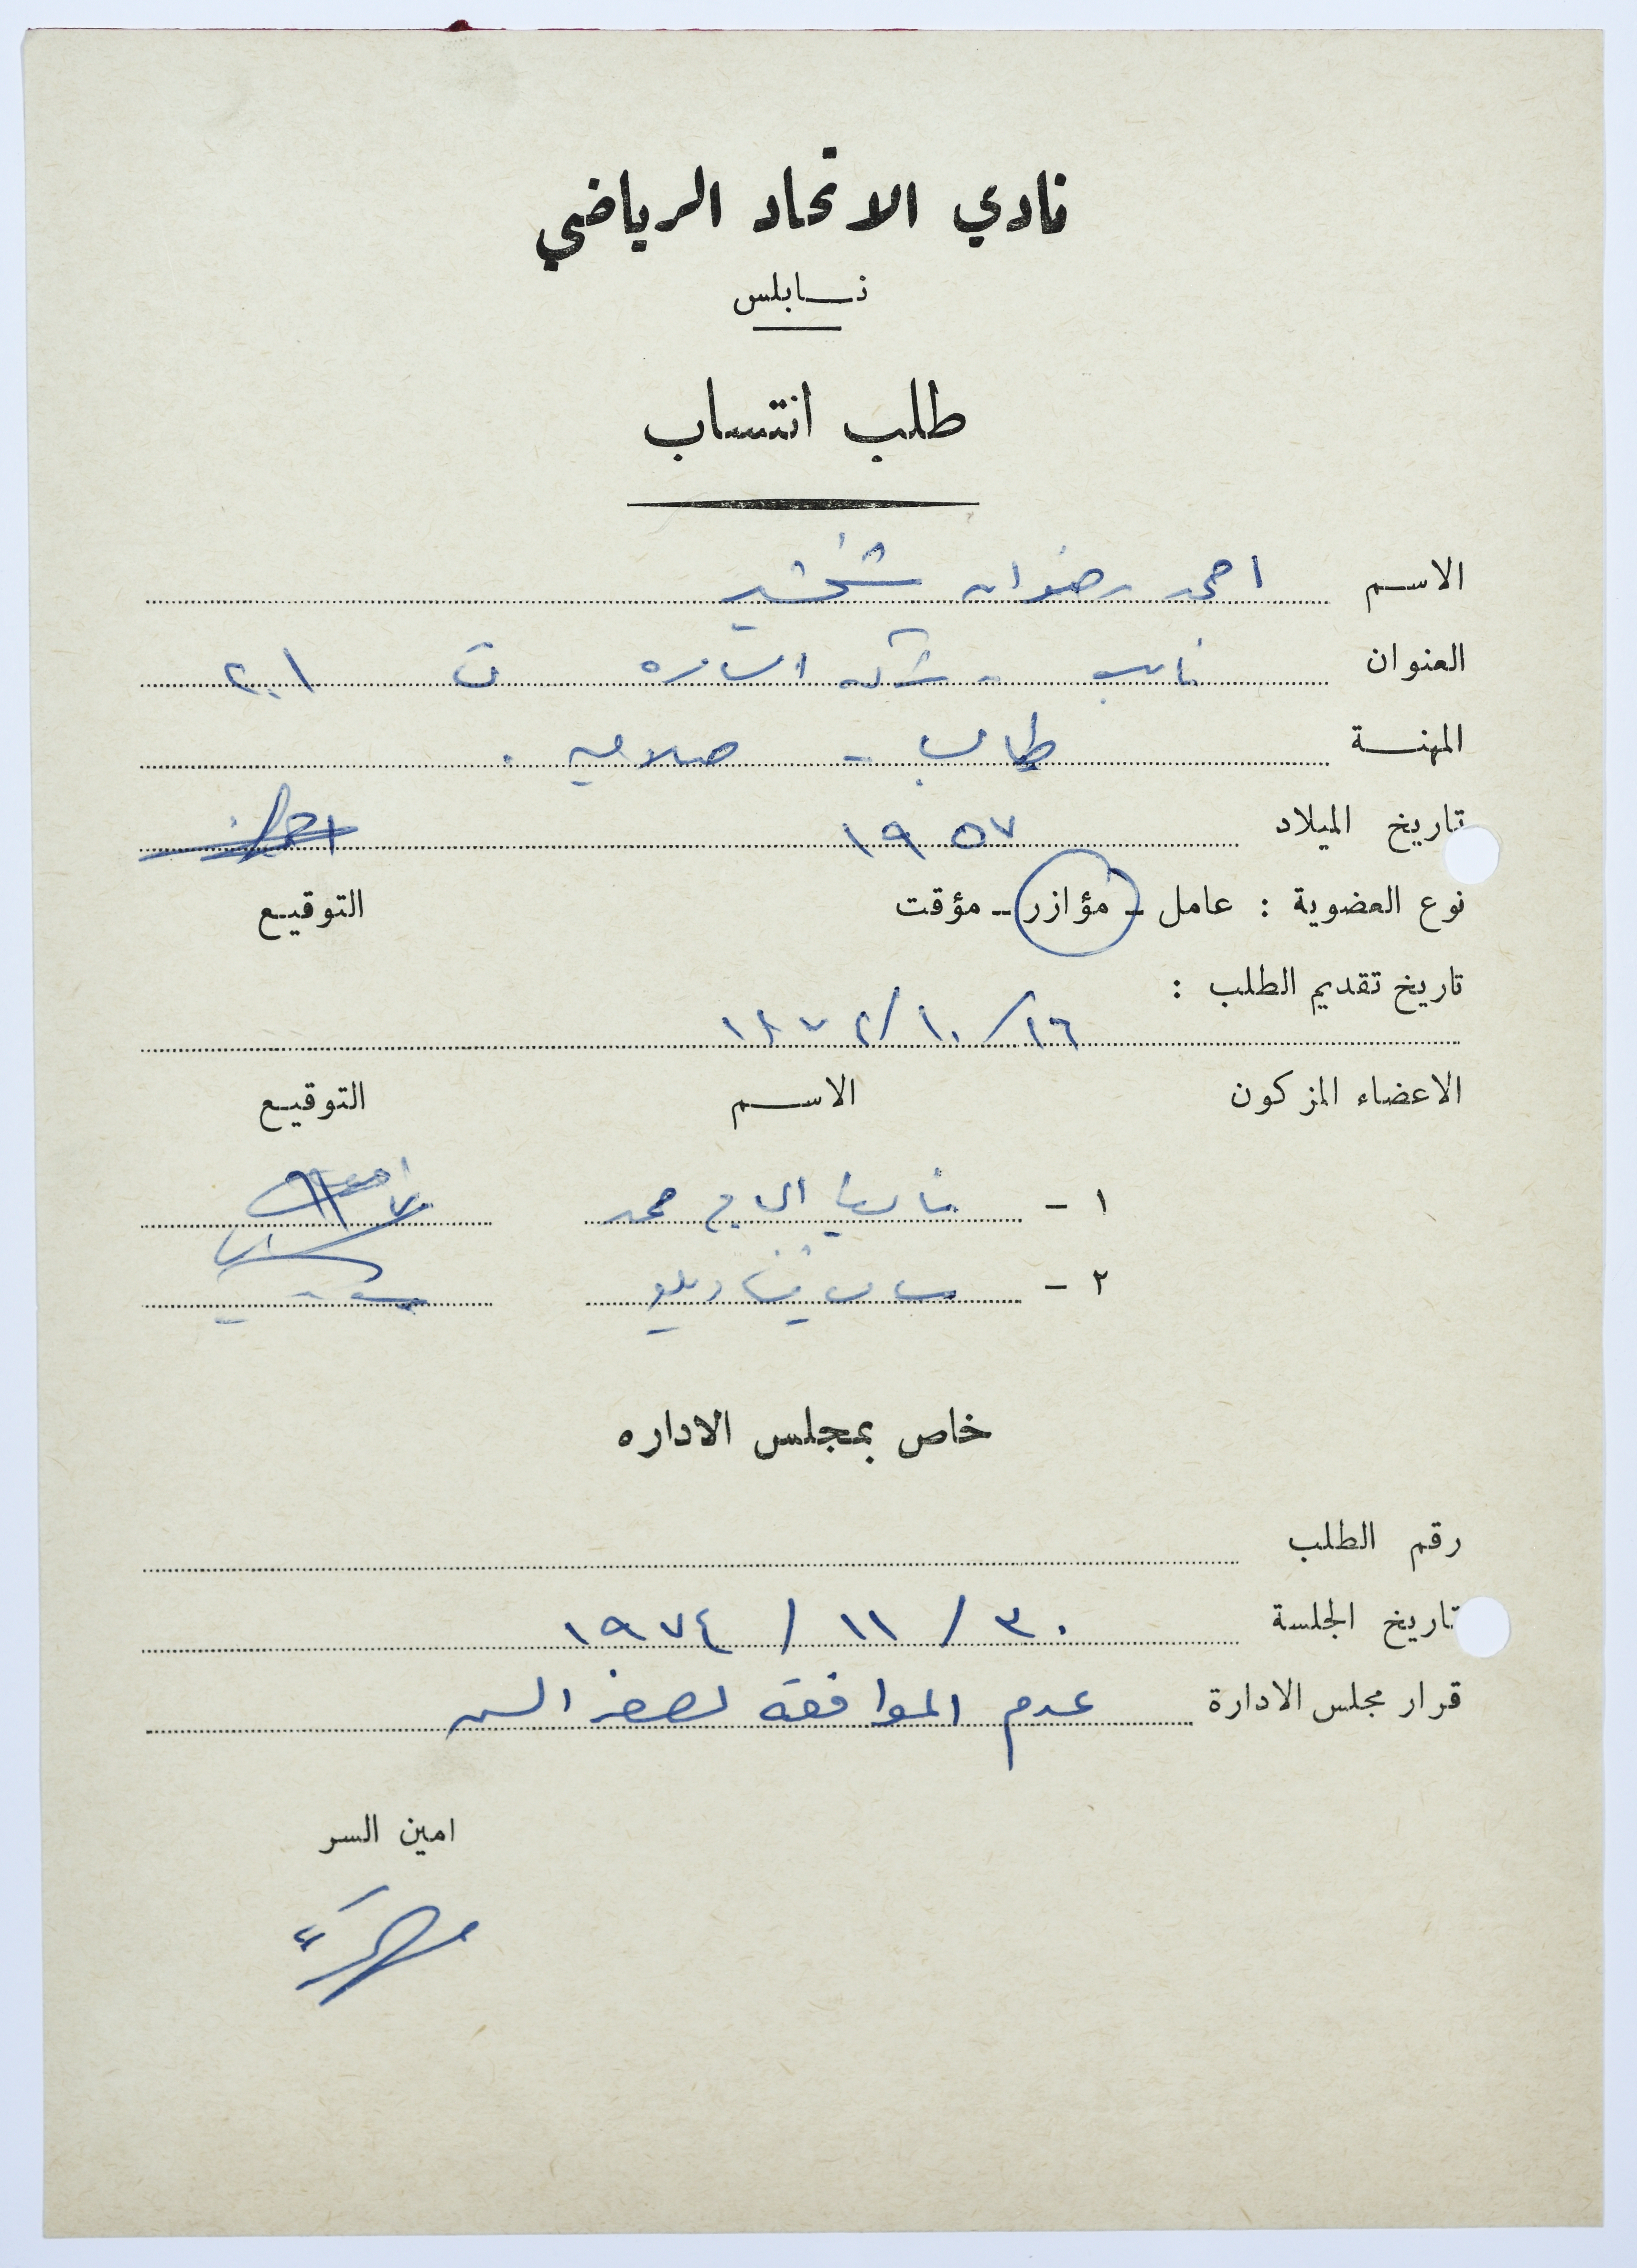 نادي الاتحاد الرياضي
نابلس
طلب انتساب
الاسم احمد رضوان شخشير
العنوان نابلس - شركة السيارة ت ٢٠١
المهنة طالب - صلاحية .
تاريخ الميلاد ١٩٥٧
نوع العضوية : عامل - مؤازر - مؤقت التوقيع
تاريخ تقديم الطلب :
١٦/١٠/١٩٧٤
الاعضاء المزكون الاسم التوقيع
١ - الحاج محمد
٢ -
خاص بمجلس الاداره
رقم الطلب
تاريخ الجلسة ٣٠ / ١١ / ١٩٧٤
قرار مجلس الادارة عدم الموافقة لصغر السن
امين السر